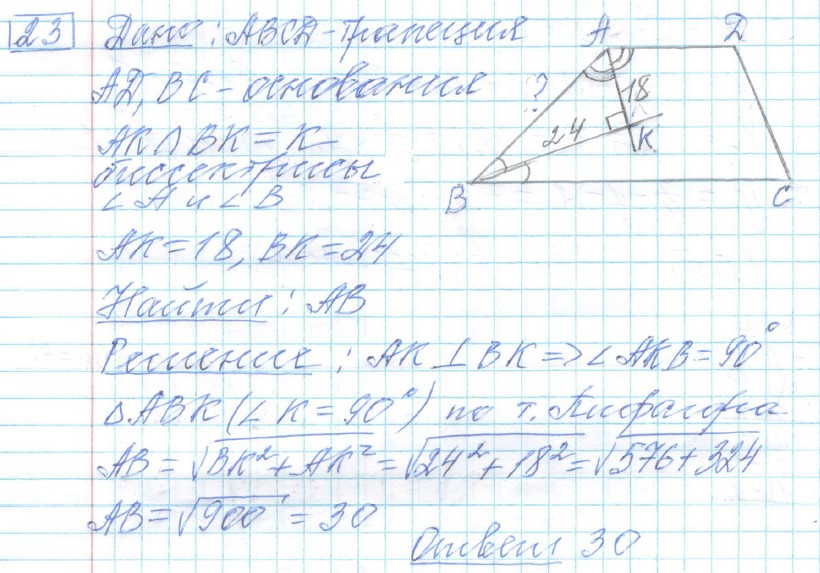 23 Дано: ABCD-трапеция
AD, BC - основания
AK ∩ BK = K
биссектрисы
∠A и ∠B
AK = 18, BK = 24
Найти: AB
Решение: AK ⊥ BK => ∠AKB = 90°
△ABK (∠K = 90°) по т. Пифагора
AB = √BK² + AK² = √24² + 18² = √576 + 324
AB = √900 = 30
Ответ 30
A D
? 18
24 K
B C